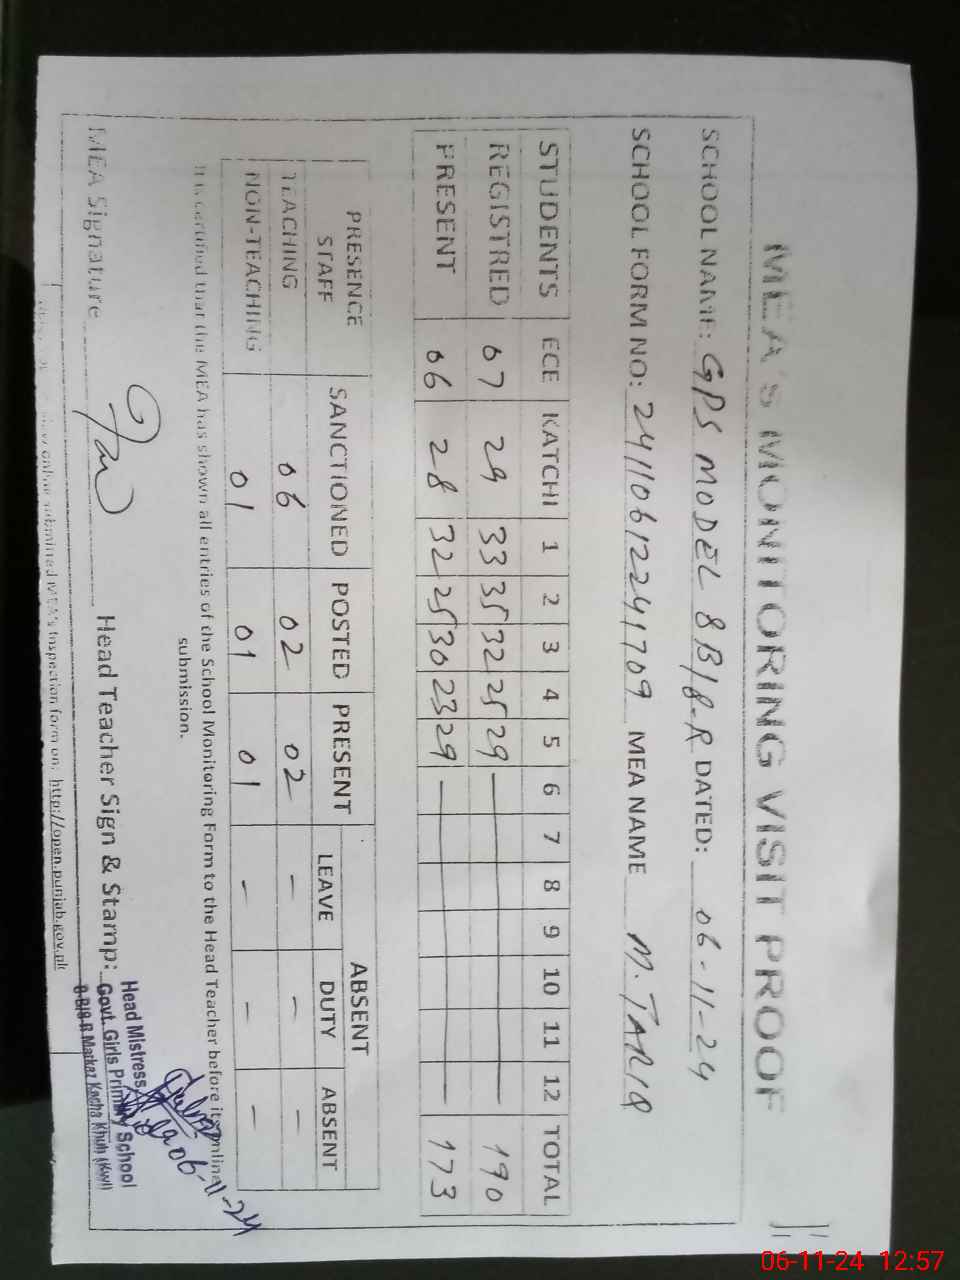 MEA'S MONITORING VISIT PROOF
SCHOOL NAME: GPS MODEL 8B/8-R DATED: 06-11-24
SCHOOL FORM NO: 24110612241709 MEA NAME M. TARIQ
STUDENTS ECE KATCHI 1 2 3 4 5 6 7 8 9 10 11 12 TOTAL
REGISTRED 07 29 33 35 32 25 29 — — 190
PRESENT 06 28 32 25 30 23 29 — — 173
PRESENCE STAFF SANCTIONED POSTED PRESENT ABSENT
LEAVE DUTY ABSENT
TEACHING 06 02 02 – – –
NON-TEACHING 01 01 01 – – –
It is certified that the MEA has shown all entries of the School Monitoring Form to the Head Teacher before its online
submission.
MEA Signature Head Teacher Sign & Stamp:
06-11-24
Head Mistress
Govt. Girls Primary School
8-B/8-R Markaz Kacha Khuh (KWI)
online submitted MEA's Inspection form on: http://open.punjab.gov.pk
06-11-24 12:57